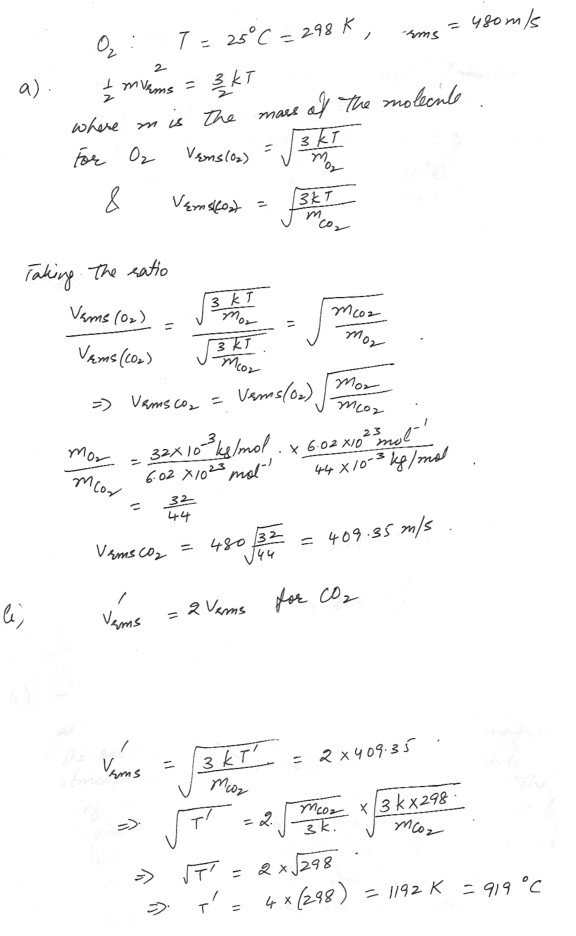 O₂ : T = 25°C = 298 K, rms = 480 m/s
a). ½ mv²rms = 3/2 kT
where m is the mass of the molecule.
For O₂ Vrms(O₂) = √(3kT/mO₂)
& Vrms(CO₂) = √(3kT/mCO₂)
Taking the ratio
Vrms(O₂)/Vrms(CO₂) = √(3kT/mO₂)/√(3kT/mCO₂) = √(mCO₂/mO₂).
⇒ VrmsCO₂ = Vrms(O₂) √(mO₂/mCO₂)
mO₂/mCO₂ = 32×10⁻³ kg/mol / 6.02×10²³ mol⁻¹ . × 6.02×10²³ mol⁻¹ / 44×10⁻³ kg/mol
= 32/44
VrmsCO₂ = 480 √(32/44) = 409.35 m/s.
V′rms = 2 Vrms for CO₂
V′rms = √(3kT′/mCO₂) = 2 × 409.35.
⇒ √T′ = 2.√(mCO₂/3k.) × √(3k×298./mCO₂)
⇒ √T′ = 2 × √298.
⇒ T′ = 4 × (298) = 1192 K = 919 °C